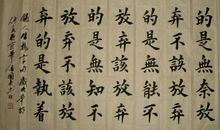 的是無奈放
弃不該放弃
的是無能不
放弃該放弃
的是無知不
放弃不該放
弃的是執着